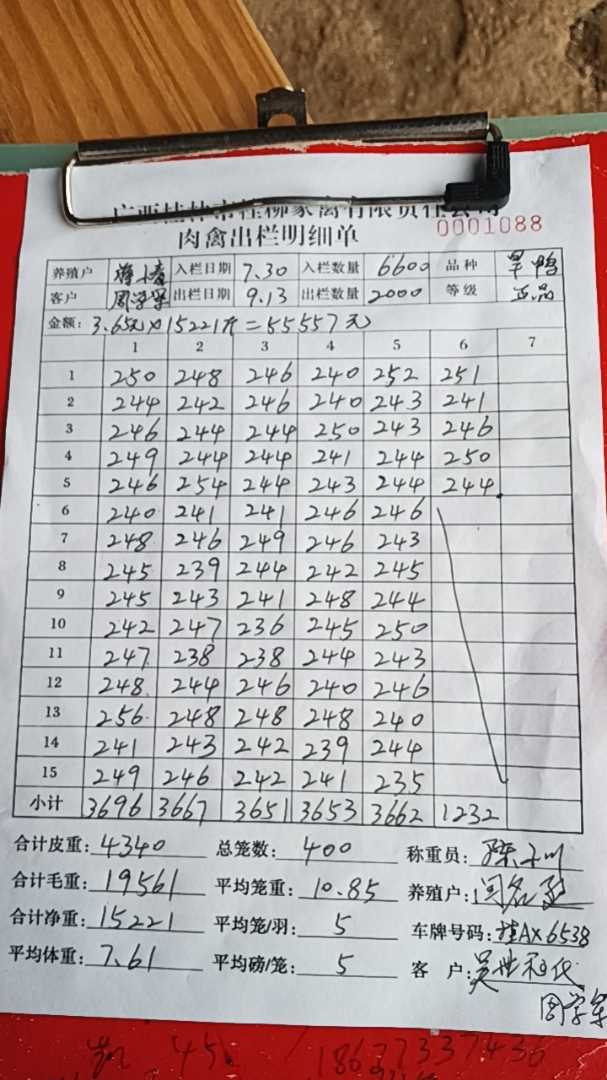 广西桂林市桂柳家禽有限责任公司
肉禽出栏明细单 0001088
养殖户 入栏日期 7.30 入栏数量 6600 品种 旱鸭
客户 周学军 出栏日期 9.13 出栏数量 2000 等级 正品
金额: 3.65元×15221斤=55557元
1 2 3 4 5 6 7
1 250 248 246 240 252 251
2 244 242 246 240 243 241
3 246 244 244 250 243 246
4 249 244 244 241 244 250
5 246 254 244 243 244 244
6 240 241 241 246 246
7 248 246 249 246 243
8 245 239 244 242 245
9 245 243 241 248 244
10 242 247 236 245 250
11 247 238 238 244 243
12 248 244 246 240 246
13 256 248 248 248 240
14 241 243 242 239 244
15 249 246 242 241 235
小计 3696 3667 3651 3653 3662 1232
合计皮重: 4340 总笼数: 400 称重员:
合计毛重: 19561 平均笼重: 10.85 养殖户:
合计净重: 15221 平均笼/羽: 5 车牌号码: 桂AX6538
平均体重: 7.61 平均磅/笼: 5 客 户:
周学军
45 18677337436